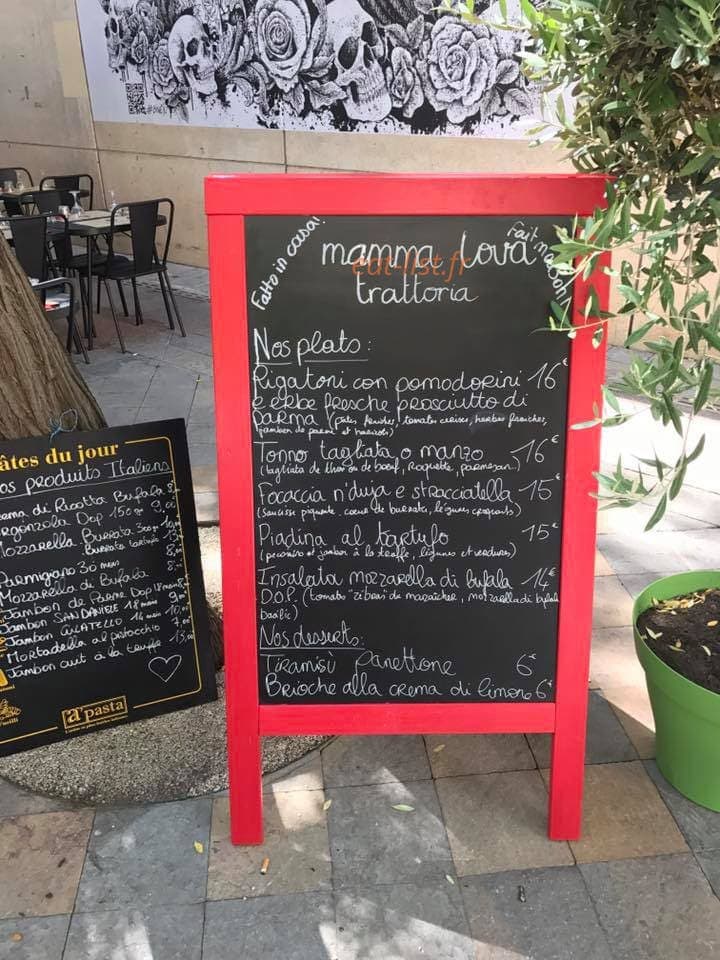 Fatto in casa!
mamma lova
Fait maison!
eat-list.fr
trattoria
Nos plats:
Rigatoni con pomodorini 16€
e erbe fresche prosciutto di
parma (pates fraiches, tomates cerises, herbes fraiches,
jambon de parme et
Tonno tagliata o manzo 16€
(tagliata de thon ou de boeuf, Roquette, parmesan)
Focaccia n'duja e stracciatella 15€
(Saucisse piquante, coeur de burrata, légumes croquants)
Piadina al tartufo 15€
(pecorino et jambon à la truffe, légumes et verdures)
Insalata mozzarella di bufala 14€
D.O.P. (tomates du maraîcher, mozzarella di bufala
basilic)
Nos desserts:
Tiramisù Panettone 6€
Brioche alla crema di limone 6€
âtes du jour
os produits Italiens
ema di Ricotta Bufala
rgonzola Dop 150gr 9,00
Mozzarella Burrata 300gr
Burrata
Parmigiano 30 mois
Mozzarella di Bufala
Jambon de Parme Dop 18 mois
Jambon SAN DANIELE 18 mois
Jambon CULATELLO 14 mois
Mortadella al pistacchio
Jambon cuit à la truffe 15,00
a'pasta